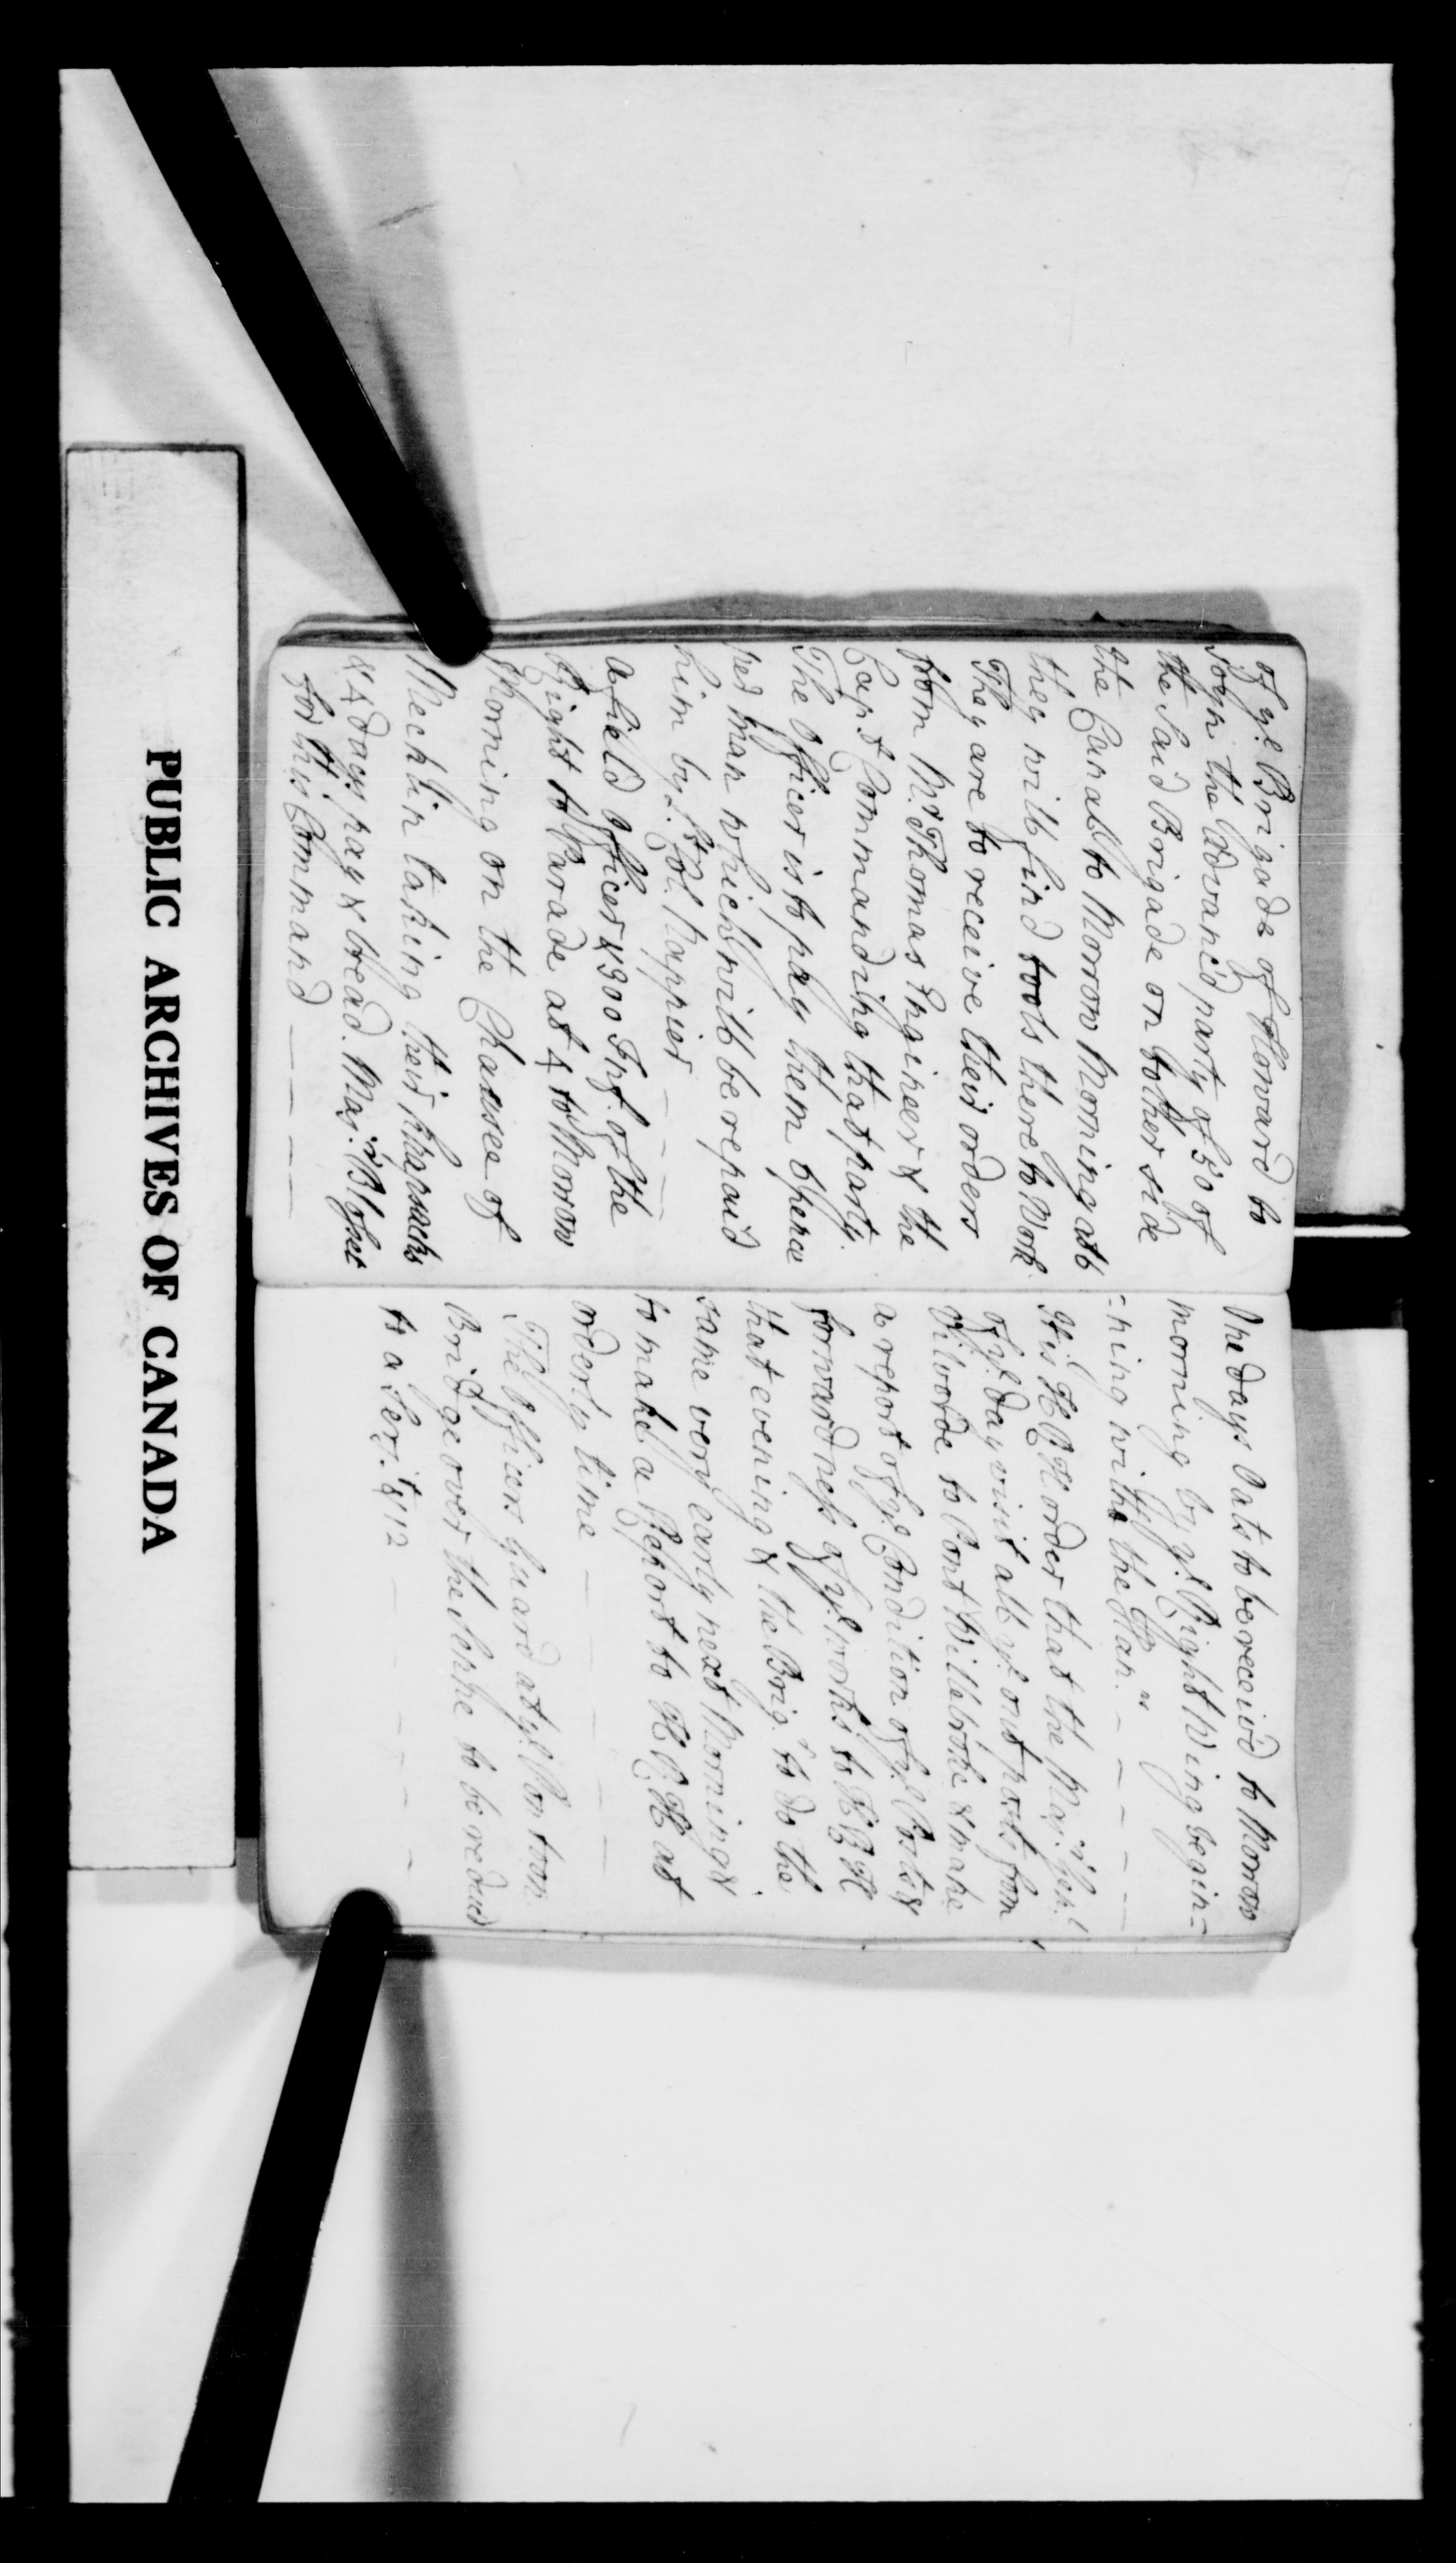 of ye. Brigade of Howard to
Joyn the Advanc'd party of 50 of
the Said Brigade on tother side
the Canall to Morrow Morning at 6
they will find tools there to Work
They are to receive their orders
from Mr. Thomas Engineer & the
Capt. Commanding that party.
The Officer is to pay them 6 pence
per man which will be repaid
him by Lt. Col. Nappier
a field Officer & 300 Inf. of the
Right to Parade at 4 to Morrow
Morning on the Chaussee of
Mechlin taking their knapsacks
& 4 days pay & bread. Majr. Bloset
for this Command
One days Oats to be receiv'd to Morrow
morning by ye. Right Wing begin=
=ning with the Hanrs.
It is H R H order that the Majr. Genl.
of ye. day visit all ye. out posts from
Vilvorde to Pont Willebroke & make
a report of ye. Condition of ye. Posts &
forwardness of ye. works to H R H
that evening & the Brigr. to do the
same very early next Morning &
to make a Report to H R H at
orderly time
The Officers Guard at ye. Pontoon
Bridge over the Senne to be reduced
to a Serjt. & 12
PUBLIC ARCHIVES OF CANADA